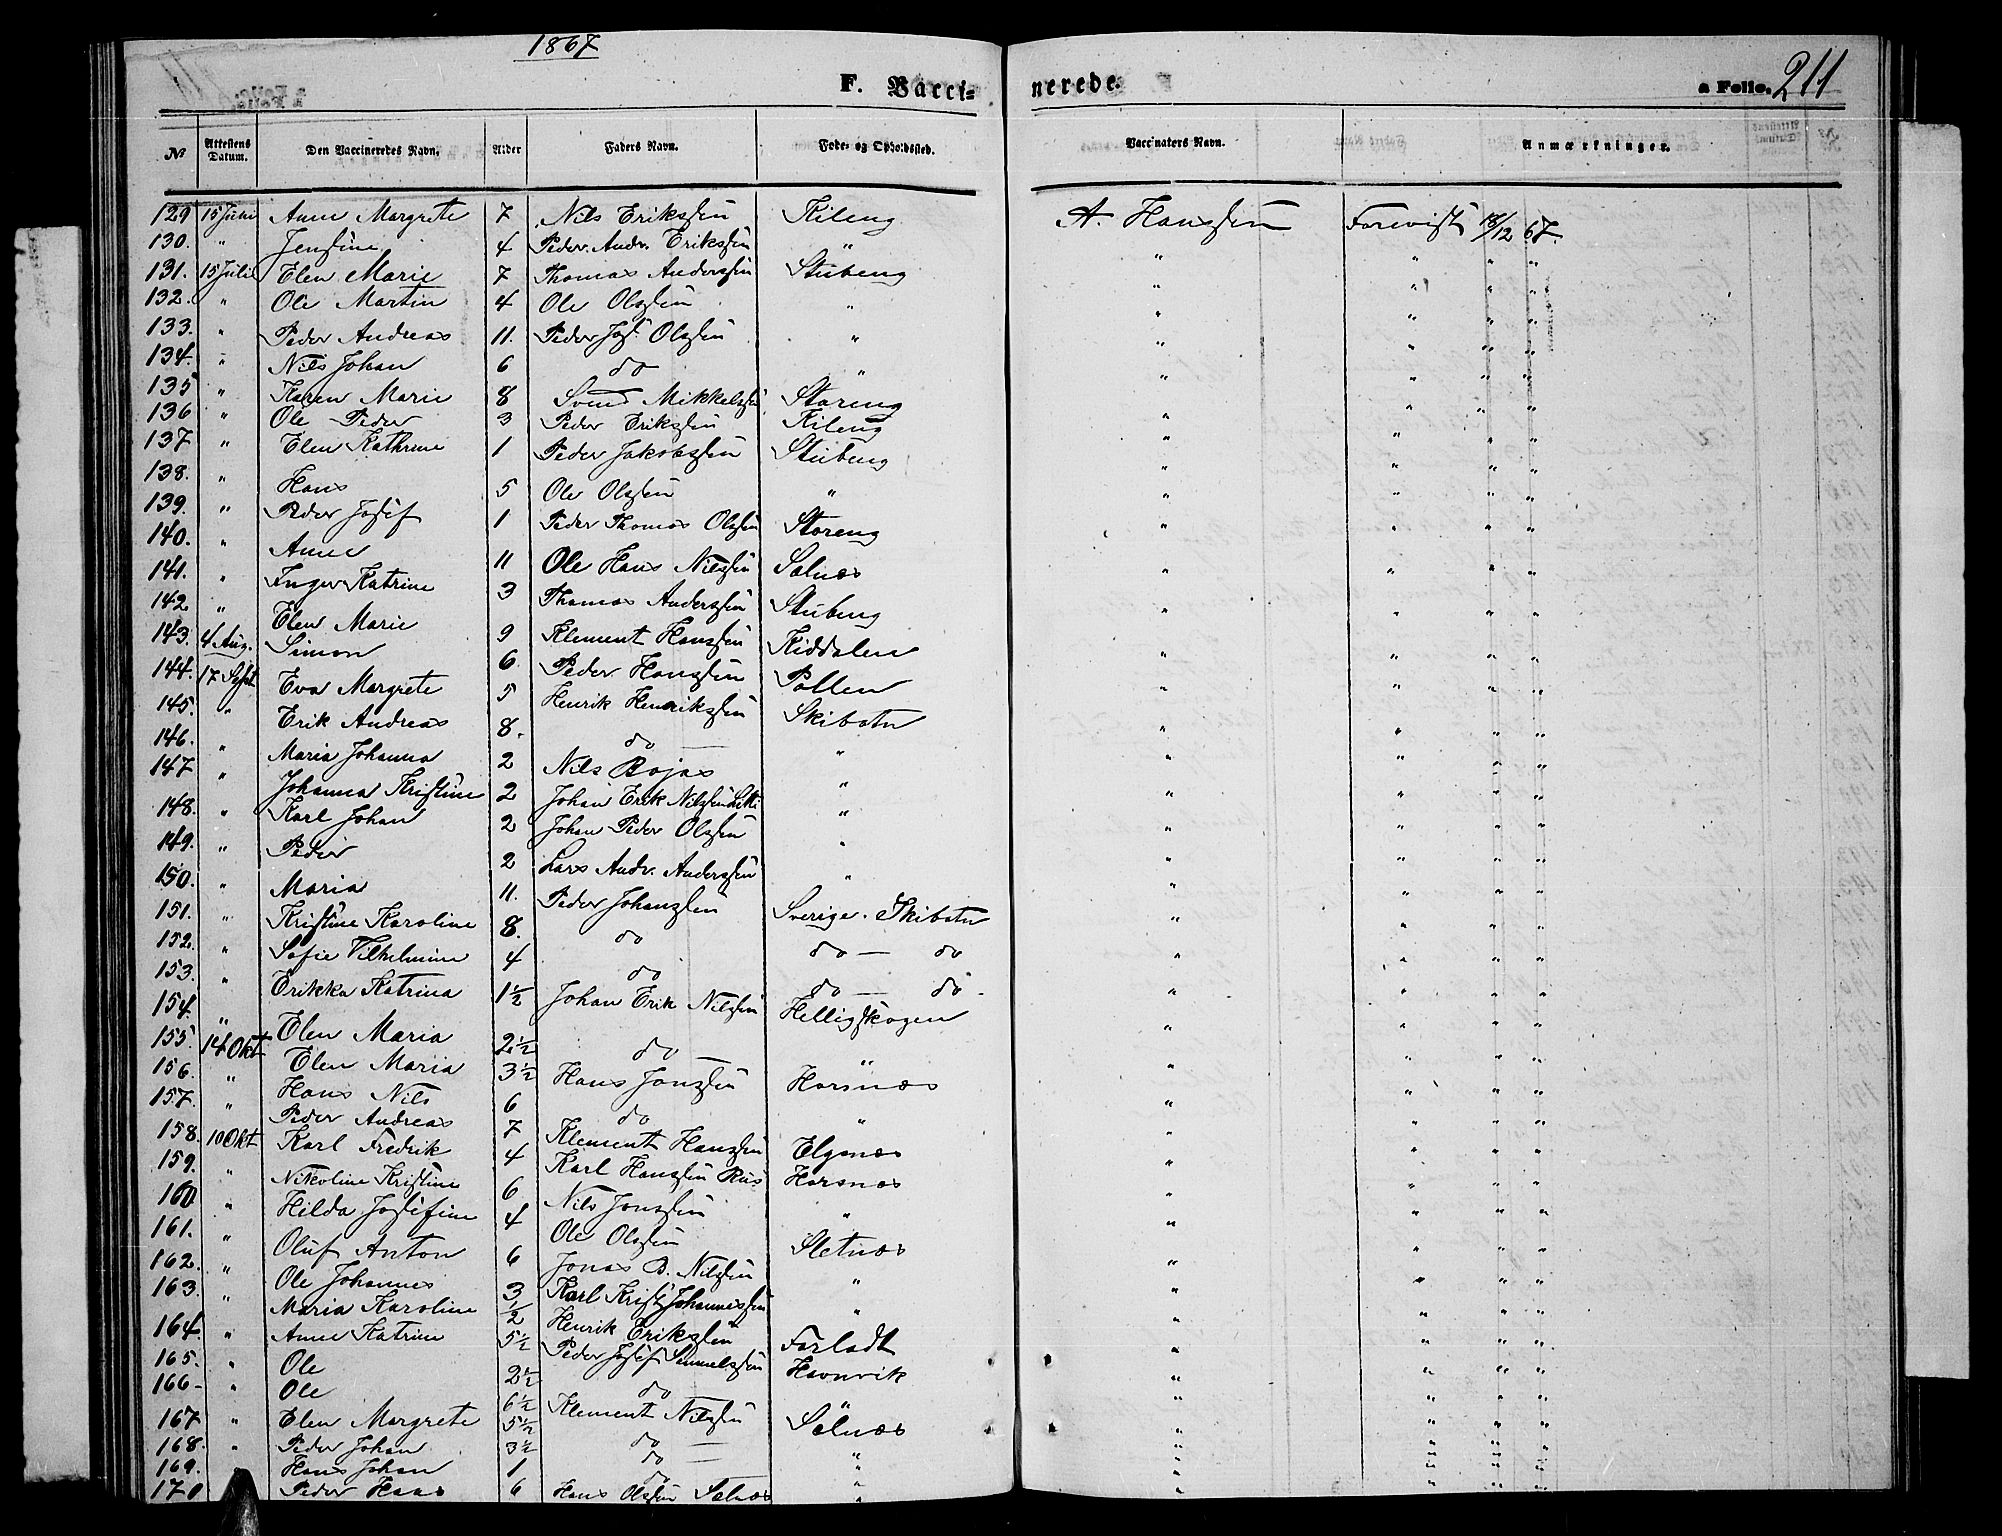 1867
F. Vacci- nerede. a Folio. 211
No Attestens Datum. Den Vaccineredes Navn. Alder Faders Navn. Føde- og Opholdssted. Vaccinateurs Navn. Anmærkninger.
129 15 Juni Anne Margrete 7 Nils Erikssen Kileng A. Hanssen Forevist 18/12 67.
130. " Jensine 4 Peder Andr. Erikssen " " " " "
131. 15 Juli Elen Marie 7 Thomas Anderssen Stubeng " " " "
132. " Ole Martin 4 Ole Olssen " " " " "
133. " Peder Andreas 11. Peder Jos. Olssen " " " " "
134. " Nils Johan 6 do " " " " "
135 " Karen Marie 8 Svend Mikkelssen Storeng " " " "
136 " Ole Peder 3 Peder Erikssen Kileng " " " "
137 " Elen Kathrine 1 Peder Jakobssen Stubeng " " " "
138. " Hans 5 Ole Olssen " " " " "
139. " Peder Josef 1 Peder Thomas Olssen Storeng " " " "
140. " Anne 11 Ole Hans Nilssen Solnæs " " " "
141. " Inger Katrine 3 Thomas Anderssen Stubeng " " " "
142 " Elen Marie 9 Klement Hanssen Kiddalen " " " "
143. 4 Aug. Simon 6 Peder Hanssen Pollen " " " "
144. 17 Sept Eva Margrete 5 Henrik Henrikssen Skibotn " " " "
145. " Erik Andreas 8. do " " " " "
146. " Maria Johanna 2 Nils Bojas " " " " "
147 " Johanna Kristine 2 Johan Erik Nilssen " " " " "
148. " Karl Johan 2 Johan Peder Olssen " " " " "
149. " Peder 2 Lars Andr. Anderssen " " " " "
150. " Maria 11. Peder Johanssen Sverige. Skibotn " " " "
151. " Kristine Karoline 8. do do — do " " " "
152. " Sofie Vilhelmine 4 do do — do " " " "
153. " Erikka Katrina 1½ Johan Erik Nilssen Helligskogen " " " "
154. " Elen Maria 2½ do " " " " "
155. 14 Okt Elen Maria 3½ Hans Jonssen Horsnæs " " " "
156. " Hans Nils 6 do " " " " "
157. " Peder Andreas 7 Klement Hanssen Elgsnæs " " " "
158. 10 Okt Karl Fredrik 4 Karl Hanssen Rus Horsnæs " " " "
159. " Nikoline Kristine 6 Nils Jonssen " " " " "
160 " Hilda Josefine 4 Ole Olssen Sletnæs " " " "
161. " Oluf Anton 6 Jonas B. Nilssen " " " " "
162. " Ole Johannes 3 Karl Krist. Johannessen " " " " "
163. " Maria Karoline ½ Henrik Erikssen Forladt " " " "
164. " Anne Katrine 5½ Peder Josef Samuelssen Havnvik " " " "
165. " Ole 2½ do " " " "
166- " Ole 6½ Klement Nilssen Sølnæs " " " "
167 " Elen Margrete 5½ do " " " " "
168. " Peder Johan 3½ do " " " " "
169. " Hans Johan 1 do " " " " "
170 Peder Hans 6 Hans Olssen Solnæs " " " " "